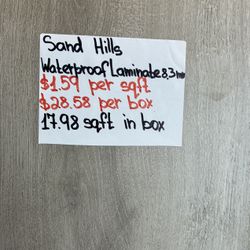 Sand Hills
Waterproof Laminate 8,3 mm
$1.59 per sqft
$28.58 per box
17.98 sqft in box